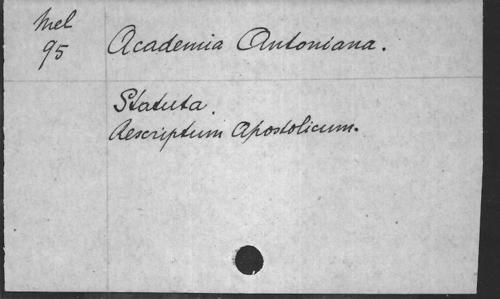 Mel
95
Academia Antoniana.
Statuta.
Rescriptum Apostolicum.